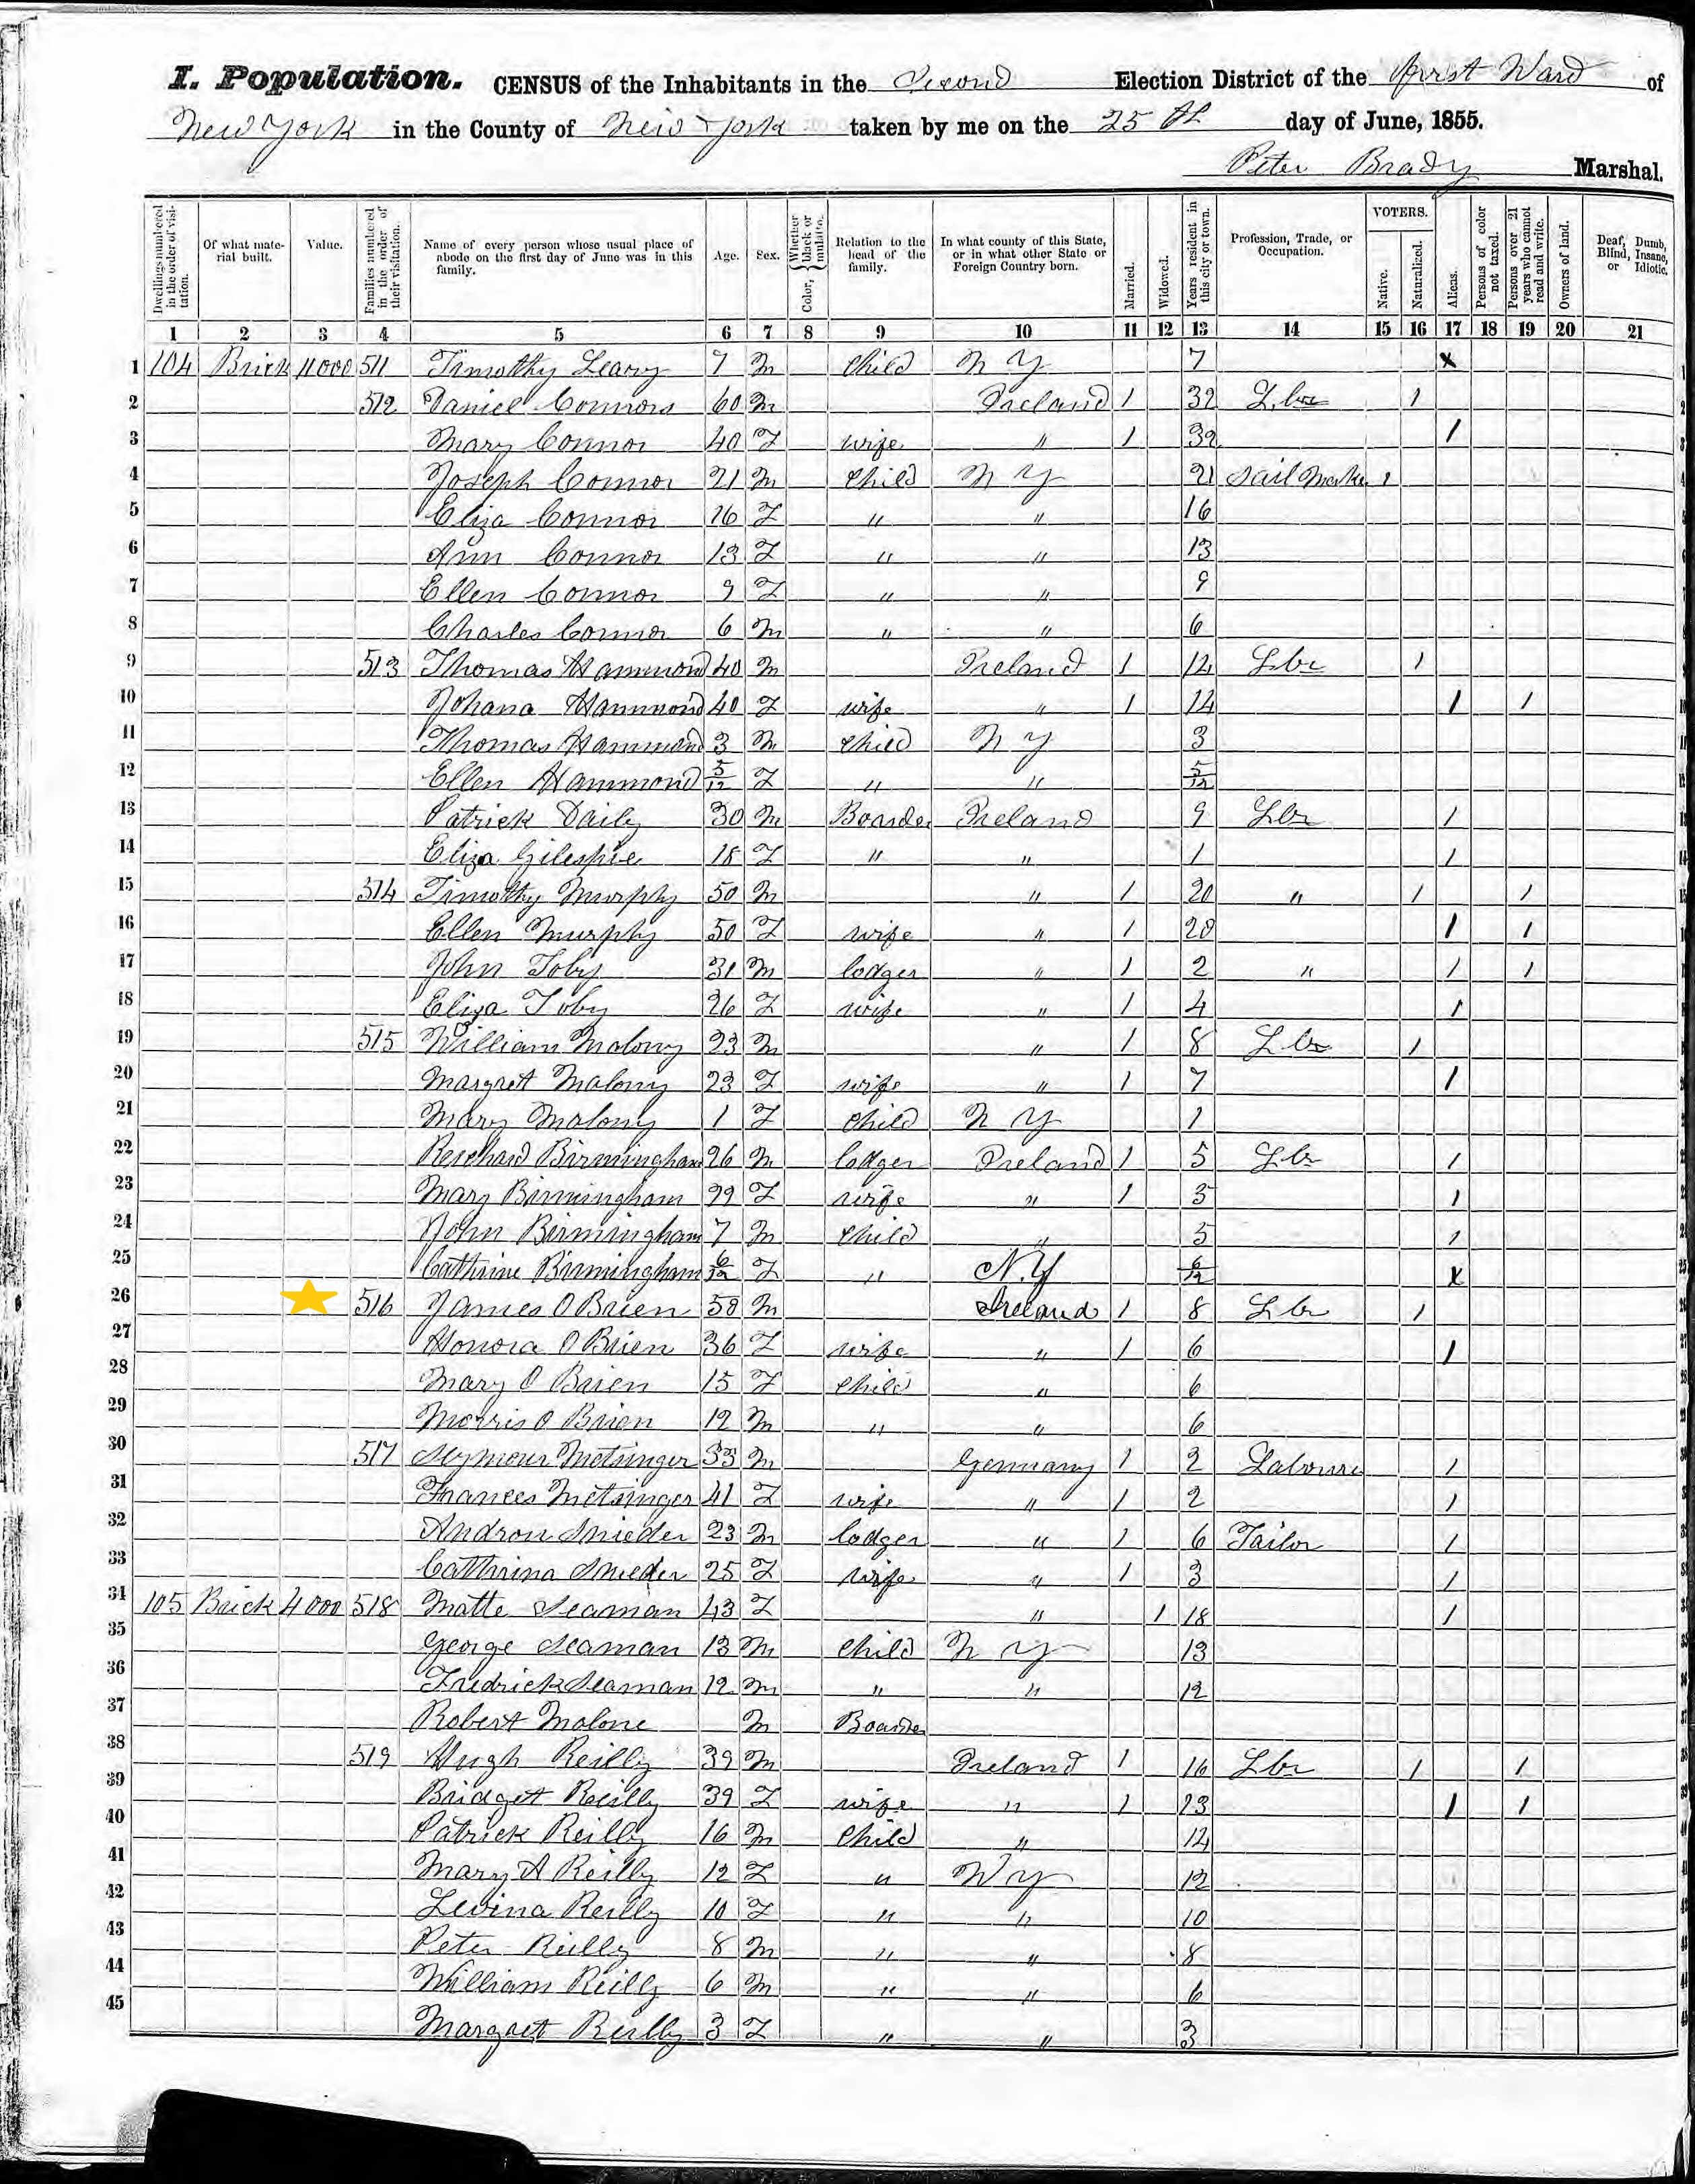 I. Population. CENSUS of the Inhabitants in the Second Election District of the First Ward of
New York in the County of New York taken by me on the 25th day of June, 1855.
Peter Brady Marshal.
Dwellings numbered in the order of visitation. Of what material built. Value. Families numbered in the order of their visitation. Name of every person whose usual place of abode on the first day of June was in this family. Age. Sex. Color, Whether black or mulatto. Relation to the head of the family. In what county of this State, or in what other State or Foreign Country born. Married. Widowed. Years resident in this city or town. Profession, Trade, or Occupation. VOTERS. Native. Naturalized. Aliens. Persons of color not taxed. Persons over 21 years who cannot read and write. Owners of land. Deaf, Dumb, Blind, Insane, or Idiotic.
1 2 3 4 5 6 7 8 9 10 11 12 13 14 15 16 17 18 19 20 21
1 104 Brick 11000 511 Timothy Leary 7 M Child N Y 7 x
2 512 Daniel Connors 60 M Ireland 1 32 Lbr 1
3 Mary Connor 40 F wife " 1 32 1
4 Joseph Connor 21 M Child N Y 21 Sail Maker 1
5 Eliza Connor 16 F " " 16
6 Ann Connor 13 F " " 13
7 Ellen Connor 9 F " " 9
8 Charles Connor 6 M " " 6
9 513 Thomas Hammond 40 M Ireland 1 14 Lbr 1
10 Johana Hammond 40 F wife " 1 14 1 1
11 Thomas Hammond 3 M Child N Y 3
12 Ellen Hammond 5/12 F " " 5/12
13 Patrick Daily 30 M Boarder Ireland 9 Lbr 1
14 Eliza Gilespie 18 F " " 1 1
15 514 Timothy Murphy 50 M " 1 20 " 1 1
16 Ellen Murphy 50 F wife " 1 20 1 1
17 John Toby 31 M lodger " 1 2 " 1 1
18 Eliza Toby 26 F wife " 1 4 1
19 515 William Malony 23 M " 1 8 Lbr 1
20 Margret Malony 23 F wife " 1 7 1
21 Mary Malony 1 F Child N Y 1
22 Reichard Birmingham 26 M lodger Ireland 1 5 Lbr 1
23 Mary Birmingham 29 F wife " 1 5 1
24 John Birmingham 7 M Child " 5 1
25 Cathrine Birmingham 6/12 F " N.Y 6/12 x
26 516 James O Brien 50 M Ireland 1 8 Lbr 1
27 Honora O Brien 36 F wife " 1 6 1
28 Mary O Brien 15 F Child " 6
29 Morris O Brien 12 M " " 6
30 517 Seymour Metsinger 33 M Germany 1 2 Labourer 1
31 Frances Metsinger 41 F wife " 1 2 1
32 Andron Snieder 23 M lodger " 1 6 Tailor 1
33 Cathrina Snieder 25 F wife " 1 3 1
34 105 Brick 4000 518 Matte Seaman 43 F " 1 18 1
35 George Seaman 13 M Child N Y 13
36 Fredrick Seaman 12 M " " 12
37 Robert Malone M Boarder
38 519 Hugh Reilly 39 M Ireland 1 16 Lbr 1 1
39 Bridget Reilly 39 F wife " 1 13 1 1
40 Patrick Reilly 16 M Child " 14
41 Mary A Reilly 12 F " N Y 12
42 Levina Reilly 10 F " " 10
43 Peter Reilly 8 M " " 8
44 William Reilly 6 M " " 6
45 Margret Reilly 3 F " " 3